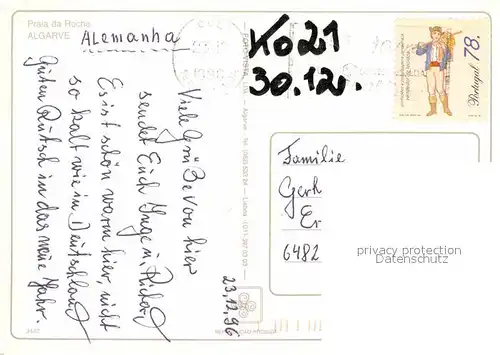 Praia da Rocha
ALGARVE
Alemanha
Ko21
30.12.
78.
Portugal
Viele Grüße von hier
sendet Euch Inge u. Richard
Es ist schön warm hier, nicht
so kalt wie in Deutschland
Guten Rutsch in das neue Jahr.
23.12.96
Familie
Gerh
Er
6482
privacy protection
Datenschutz